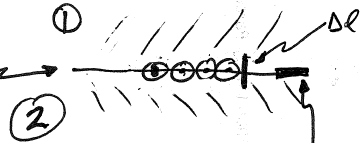 ①
Δl
②